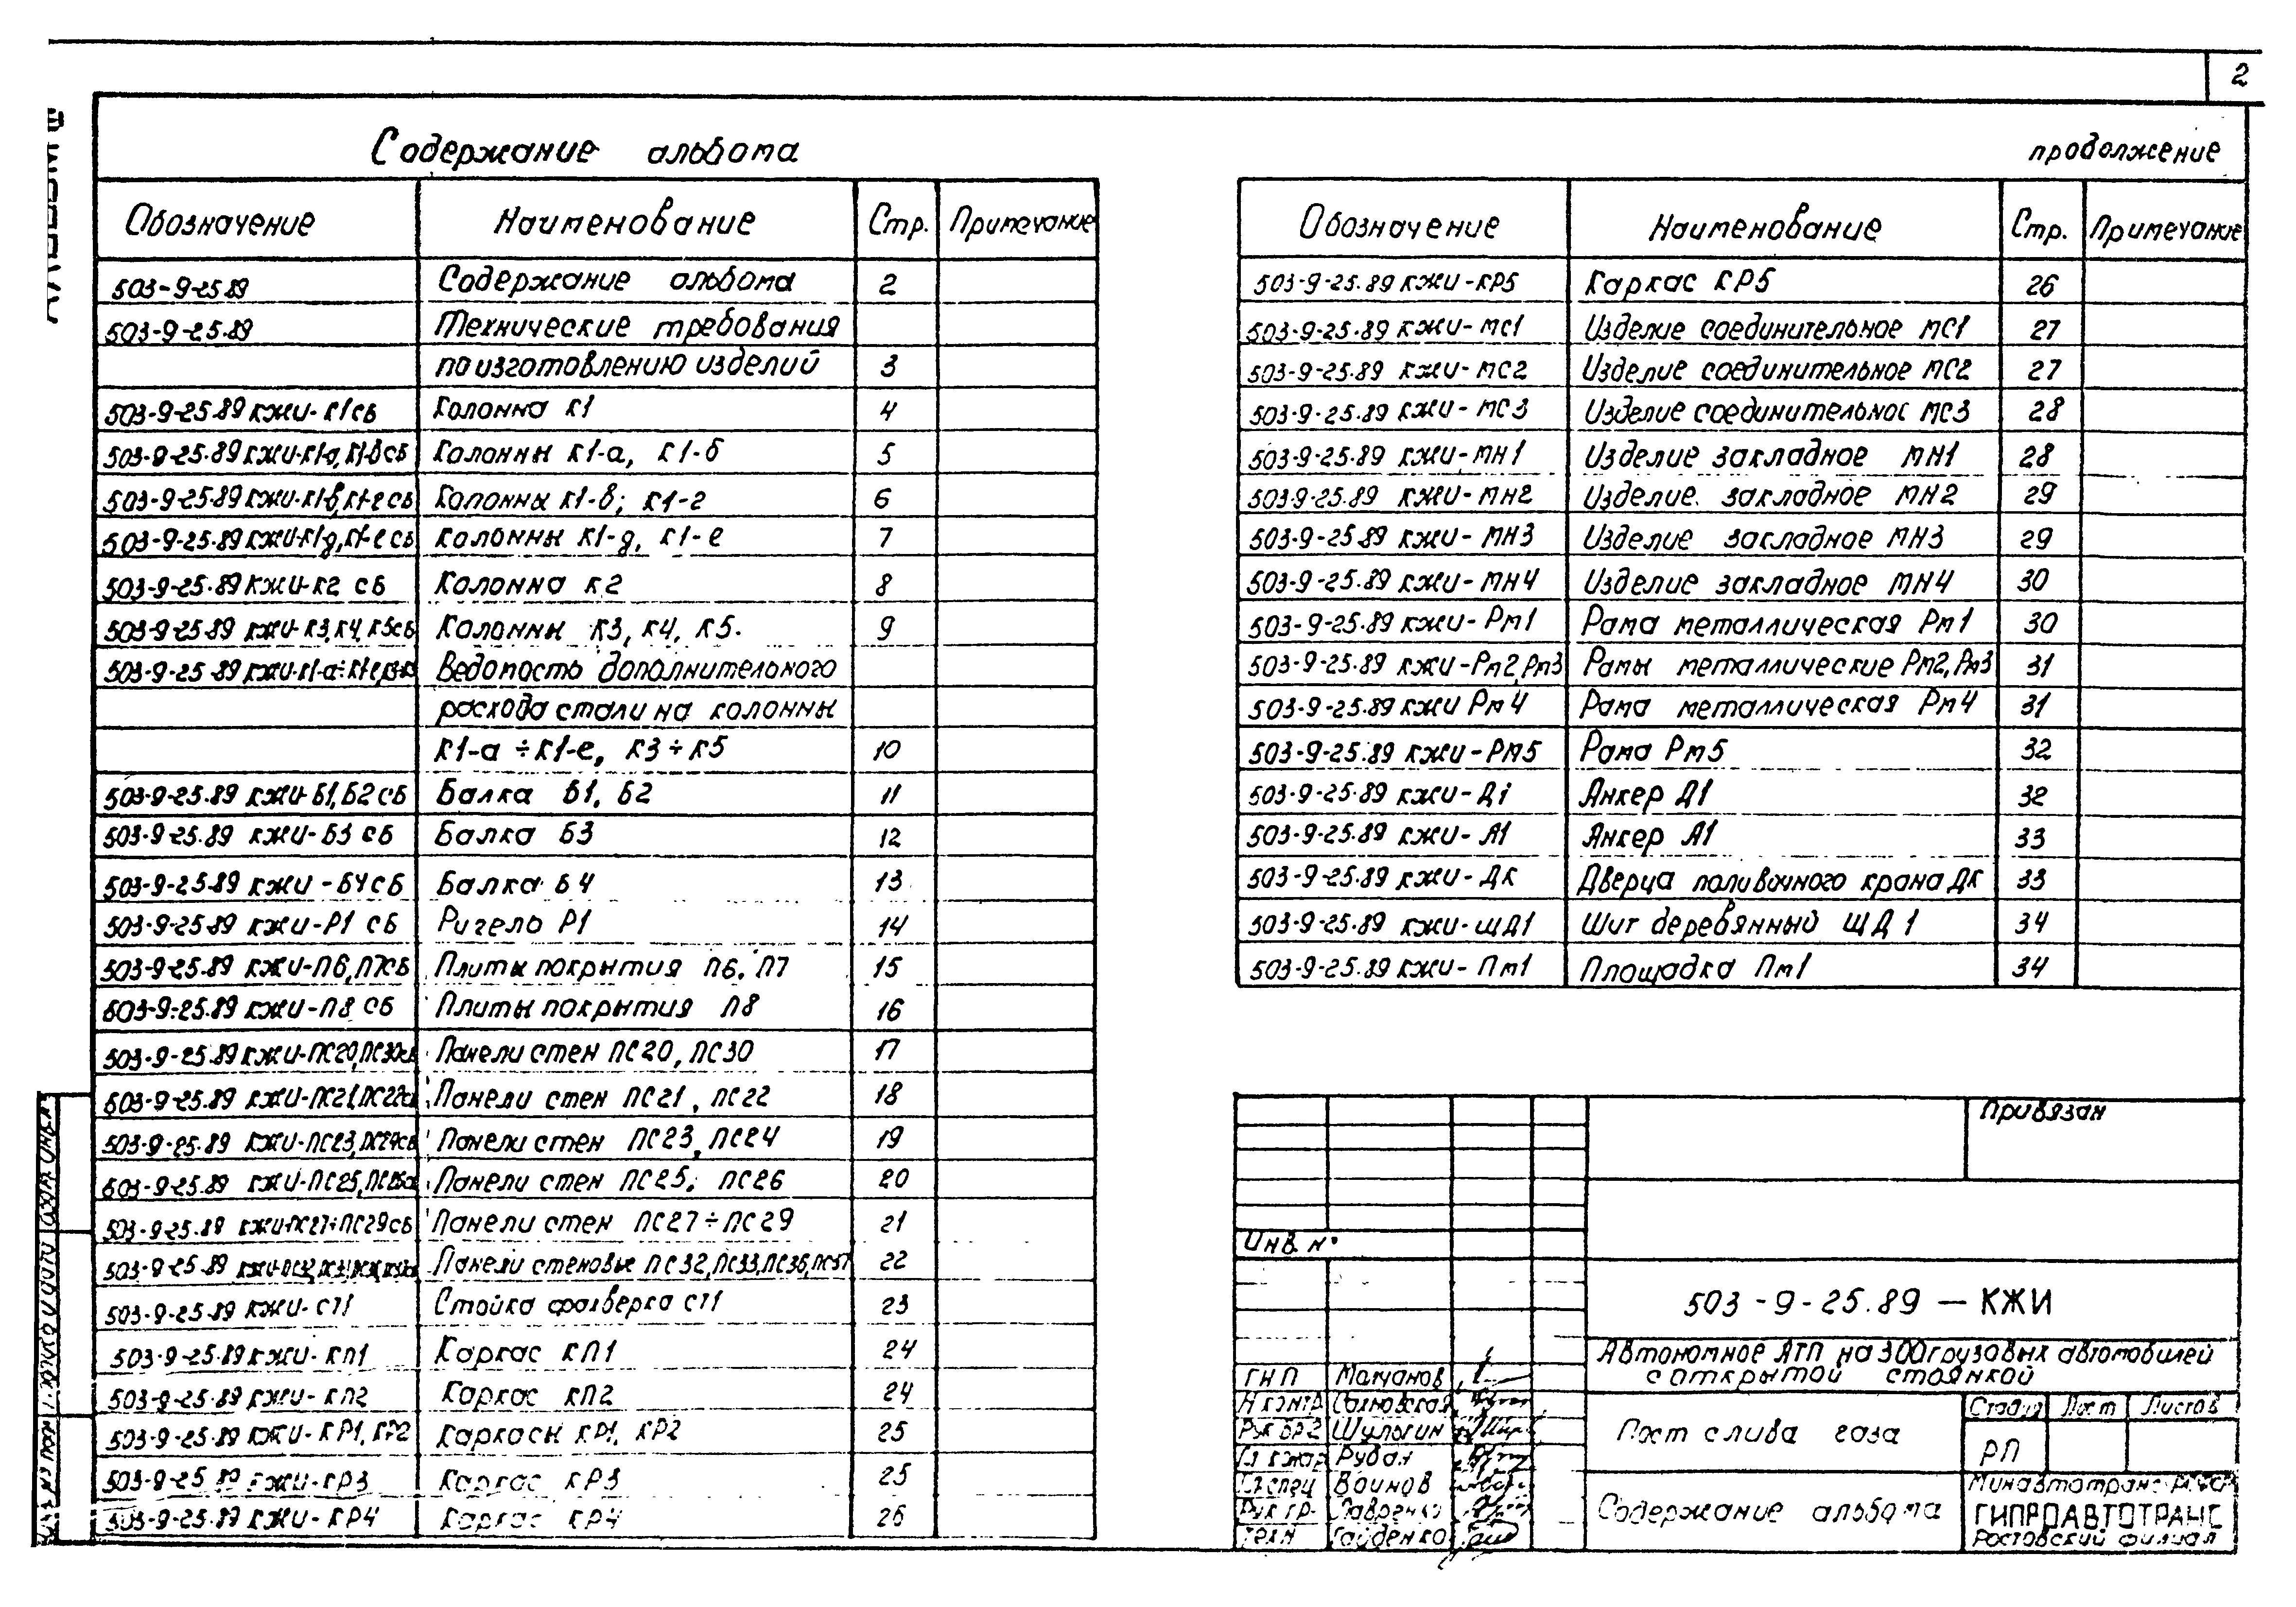 2
Содержание альбома
Обозначение Наименование Стр. Примечание
503-9-25.89 Содержание альбома 2
503-9-25.89 Технические требования
по изготовлению изделий 3
503-9-25.89 КЖИ-К1сб Колонна К1 4
503-9-25.89 КЖИ-К1-а, К1-б сб Колонны К1-а, К1-б 5
503-9-25.89 КЖИ-К1-в, К1-г сб Колонны К1-в; К1-г 6
503-9-25.89 КЖИ-К1д, К1-е сб Колонны К1-д, К1-е 7
503-9-25.89 КЖИ-К2 сб Колонна К2 8
503-9-25.89 КЖИ-К3, К4, К5сб Колонны К3, К4, К5. 9
503-9-25.89 Ведомость дополнительного
расхода стали на колонны
К1-а ÷ К1-е, К3 ÷ К5 10
503-9-25.89 КЖИ-Б1, Б2 сб Балка Б1, Б2 11
503-9-25.89 КЖИ-Б3 сб Балка Б3 12
503-9-25.89 КЖИ-Б4сб Балка Б4 13
503-9-25.89 КЖИ-Р1 сб Ригель Р1 14
503-9-25.89 КЖИ-П6, П7сб Плиты покрытия П6, П7 15
503-9-25.89 КЖИ-П8 сб Плиты покрытия П8 16
503-9-25.89 КЖИ-ПС20, ПС30сб Панели стен ПС20, ПС30 17
503-9-25.89 КЖИ-ПС21, ПС22сб Панели стен ПС21, ПС22 18
503-9-25.89 КЖИ-ПС23, ПС24сб Панели стен ПС23, ПС24 19
503-9-25.89 КЖИ-ПС25, ПС26сб Панели стен ПС25, ПС26 20
503-9-25.89 КЖИ-ПС27÷ПС29сб Панели стен ПС27÷ПС29 21
503-9-25.89 Панели стеновые ПС32, ПС33, ПС36, ПС37 22
503-9-25.89 КЖИ-СТ1 Стойка фахверка СТ1 23
503-9-25.89 КЖИ-КП1 Каркас КП1 24
503-9-25.89 КЖИ-КП2 Каркас КП2 24
503-9-25.89 КЖИ-КР1, КР2 Каркасы КР1, КР2 25
503-9-25.89 КЖИ-КР3 Каркас КР3 25
503-9-25.89 КЖИ-КР4 Каркас КР4 26
продолжение
Обозначение Наименование Стр. Примечание
503-9-25.89 КЖИ-КР5 Каркас КР5 26
503-9-25.89 КЖИ-МС1 Изделие соединительное МС1 27
503-9-25.89 КЖИ-МС2 Изделие соединительное МС2 27
503-9-25.89 КЖИ-МС3 Изделие соединительное МС3 28
503-9-25.89 КЖИ-МН1 Изделие закладное МН1 28
503-9-25.89 КЖИ-МН2 Изделие закладное МН2 29
503-9-25.89 КЖИ-МН3 Изделие закладное МН3 29
503-9-25.89 КЖИ-МН4 Изделие закладное МН4 30
503-9-25.89 КЖИ-Рм1 Рама металлическая Рм1 30
503-9-25.89 КЖИ-Рм2, Рм3 Рамы металлические Рм2, Рм3 31
503-9-25.89 КЖИ Рм4 Рама металлическая Рм4 31
503-9-25.89 КЖИ-Рм5 Рама Рм5 32
503-9-25.89 КЖИ-Д1 Анкер Д1 32
503-9-25.89 КЖИ-А1 Анкер А1 33
503-9-25.89 КЖИ-ДК Дверца поливочного крана ДК 33
503-9-25.89 КЖИ-ЩД1 Щит деревянный ЩД1 34
503-9-25.89 КЖИ-Пм1 Площадка Пм1 34
Привязан
Инв. №
503-9-25.89 — КЖИ
Автономное АТП на 300 грузовых автомобилей
с открытой стоянкой
ГИП Молчанов
Н контр Сахновская
Рук бр2 Шульгин
Рубан
Гл спец Воинов
Рук гр.
Техн Гайденко
Пост слива газа
Стадия Лист Листов
РП
Содержание альбома
Минавтотранс РСФСР
ГИПРОАВТОТРАНС
Ростовский филиал